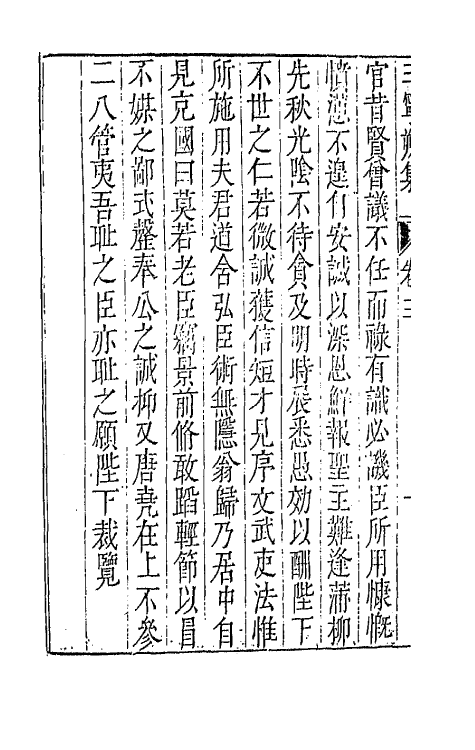 王寧朔集 卷三
官昔賢會議不任而祿有識必譏臣所用慷慨
憤懣不遑自安誠以深恩鮮報聖主難逢蒲柳
先秋光陰不待貪及明時展悉愚効以酬陛下
不世之仁若微誠獲信短才見序文武吏法惟
所施用夫君道含弘臣術無隱翁歸乃居中自
見充國曰莫若老臣竊景前脩敢蹈輕節以冒
不媒之鄙式罄奉公之誠抑又唐堯在上不參
二八管夷吾耻之臣亦耻之願陛下裁覽